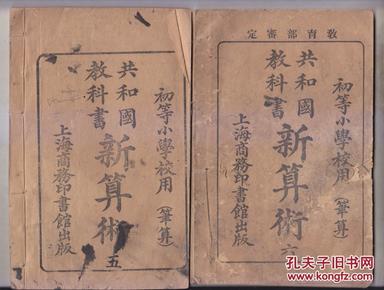 初等小學校用（筆算）
共和國
教科書
新算術
五
上海商務印書館出版
教育部審定
初等小學校用（筆算）
共和國
教科書
新算術
六
上海商務印書館出版
孔夫子旧书网